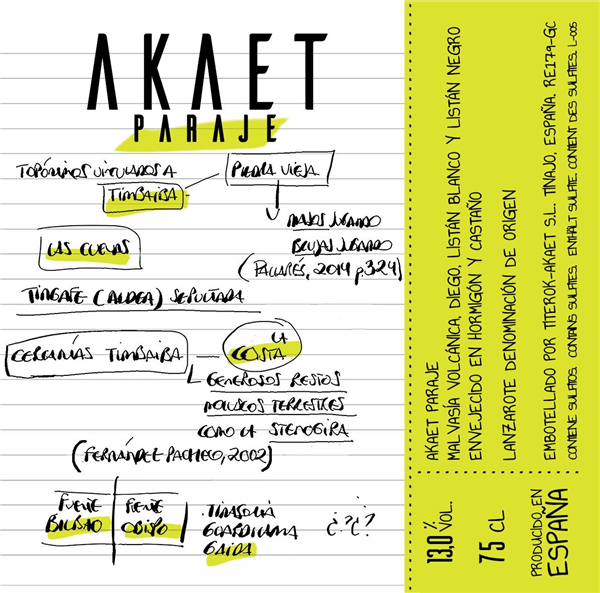 AKAET
PARAJE
TOPÓNIMOS VINCULADOS A
TIMBAIBA
PIEDRA VIEJA
MAJOS JUGANDO
BRUJAS JUGANDO
(PALLARÉS, 2014 p324)
LAS CUEVAS
TINGAFE (ALDEA) SEPULTADA
CERCANÍAS TIMBAIBA
LA
COSTA
GENEROSOS RESTOS
MOLUSCOS TERRESTRES
COMO LA STENOGIRA
(FERNÁNDEZ PACHECO, 2002)
FUENTE
BILBAO
FUENTE
OBISPO
GUARDILAMA
GAIDA
¿?¿?
AKAET PARAJE
MALVASÍA VOLCÁNICA, DIEGO, LISTÁN BLANCO Y LISTÁN NEGRO
ENVEJECIDO EN HORMIGÓN Y CASTAÑO
LANZAROTE DENOMINACIÓN DE ORIGEN
EMBOTELLADO POR TITEROK-AKAET S.L. TINAJO, ESPAÑA. RE179-GC
CONTIENE SULFITOS. CONTAINS SULFITES. ENTHÄLT SULFITE. CONTENT DES SULFITES. L-005
13,0 % VOL.
75 CL
PRODUCIDO EN
ESPAÑA